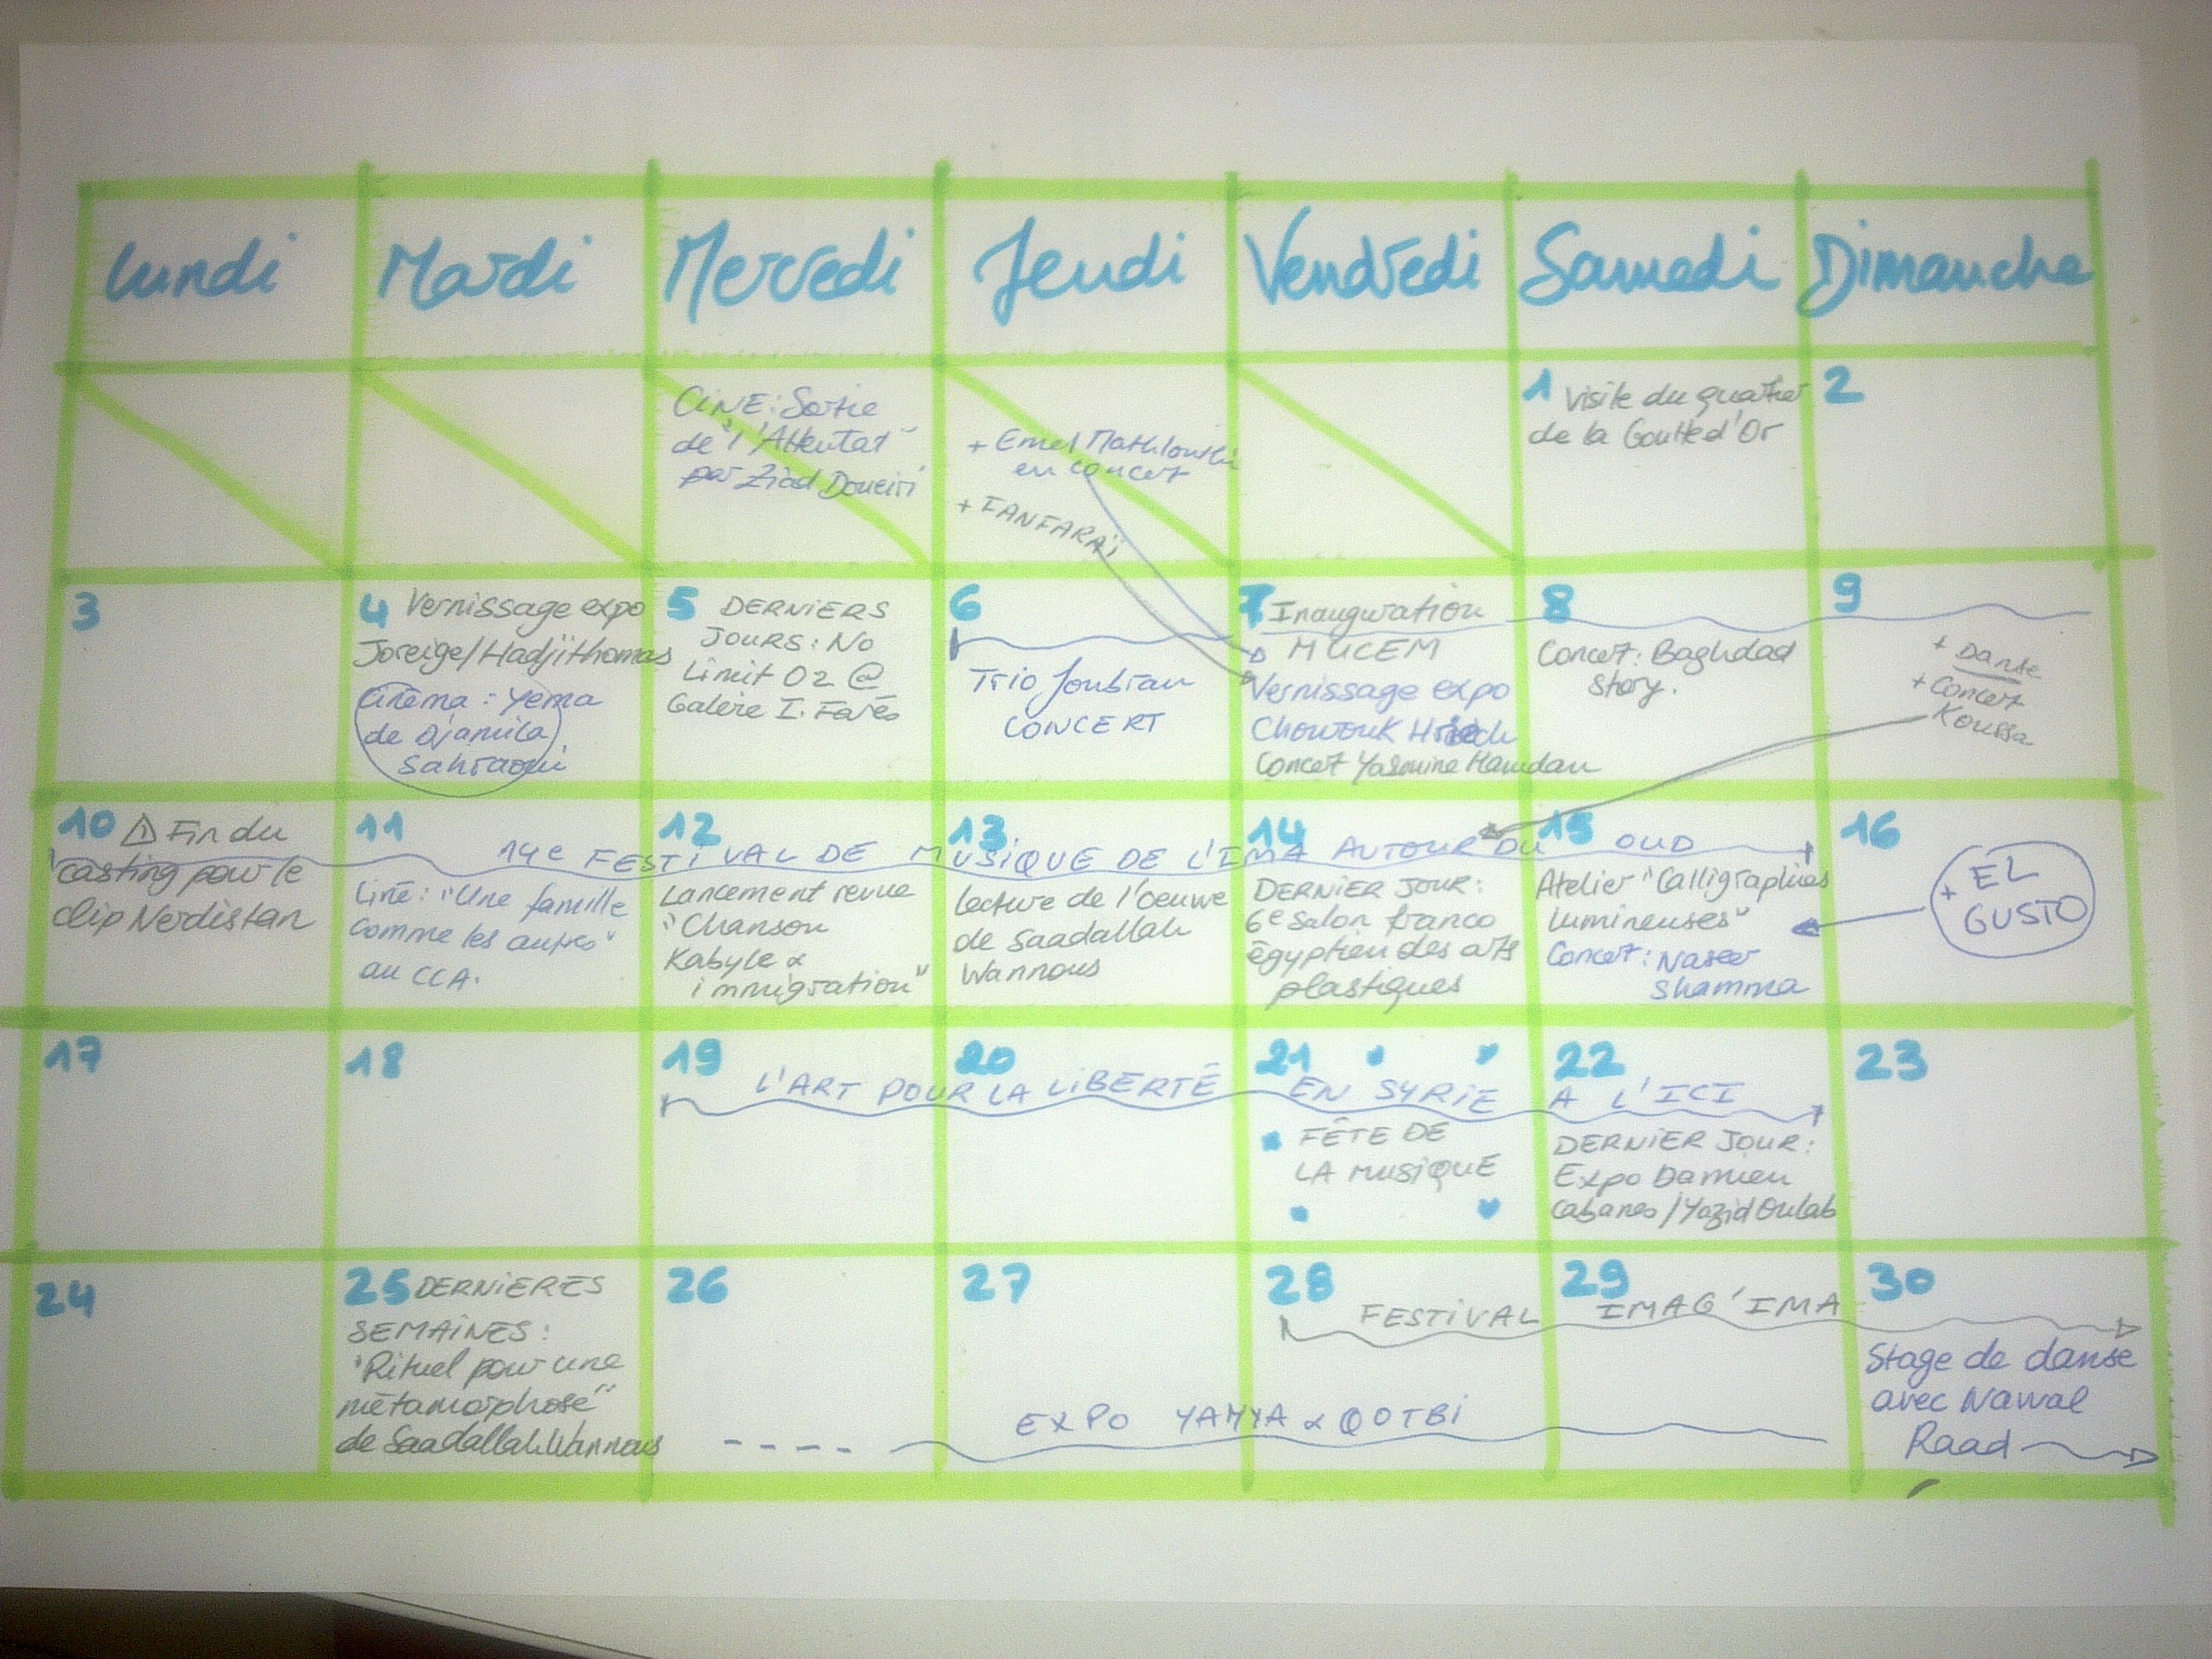 Lundi Mardi Mercredi Jeudi Vendredi Samedi Dimanche
CINÉ: Sortie
de "l'Attentat"
par Ziad Doueiri
+ Emel Mathlouthi
en concert
+ FANFARAÏ
1 Visite du quartier
de la Goutte d'Or
2
3
4 Vernissage expo
Joreige/Hadjithomas
Cinéma: Yema
de Djamila
Sahraoui
5 DERNIERS
JOURS: No
Limit 02 @
Galerie I. Farès
6
Trio Joubran
CONCERT
7 Inauguration
MUCEM
Vernissage expo
Chourouk Hriech
Concert Yasmine Hamdan
8
Concert: Baghdad
Story.
9
+ Danse
+ Concert
Koussa
10 ⚠ Fin du
casting pour le
clip Nerdistan
14e FESTIVAL DE MUSIQUE DE L'IMA AUTOUR DU OUD
11
Ciné: "Une famille
comme les autres"
au CCA.
12
Lancement revue
"Chanson
Kabyle &
immigration"
13
Lecture de l'oeuvre
de Saadallah
Wannous
14
DERNIER JOUR:
6e Salon franco
égyptien des arts
plastiques
15
Atelier "Calligraphies
lumineuses"
Concert: Naseer
Shamma
16
+ EL
GUSTO
17
18
19
L'ART POUR LA LIBERTÉ EN SYRIE A L'ICI
20
21
FÊTE DE
LA MUSIQUE
22
DERNIER JOUR:
Expo Damien
Cabanes/Yazid Oulab
23
24
25 DERNIERES
SEMAINES:
"Rituel pour une
métamorphose"
de Saadallah Wannous
26
27
EXPO YAHYA & QOTBI
28
FESTIVAL IMAG'IMA
29
30
Stage de danse
avec Nawal
Raad